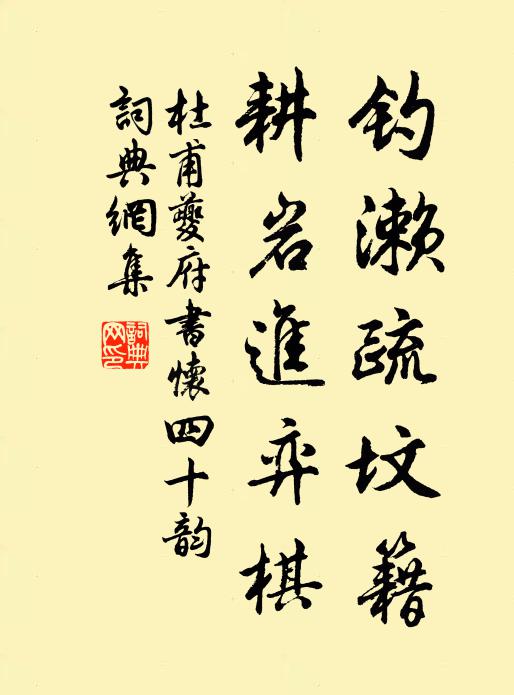 钓濑疏坟籍
耕岩進弈棋
杜甫夔府書懷四十韵
詞典網集
詞典网印